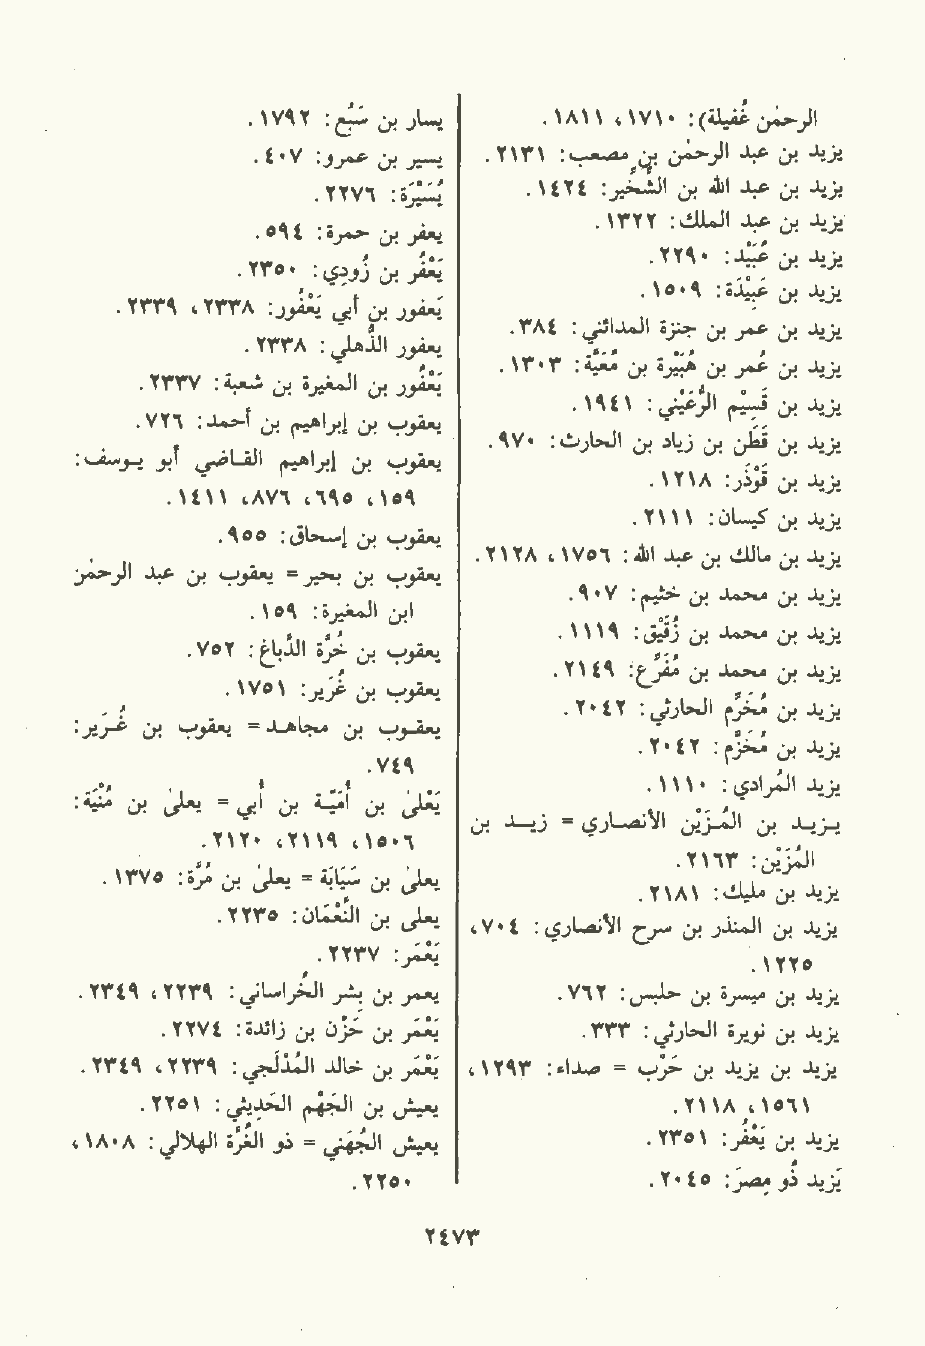 الرحمٰن غُفيلة): ١٧١٠، ١٨١١.
يزيد بن عبد الرحمٰن بن مصعب: ٢١٣١.
يزيد بن عبد الله بن الشِّخِّير: ١٤٢٤.
يزيد بن عبد الملك: ١٣٢٢.
يزيد بن عُبَيْد: ٢٢٩٠.
يزيد بن عَبِيْدَة: ١٥٠٩.
يزيد بن عمر بن جنزة المدائني: ٣٨٤.
يزيد بن عُمر بن هُبَيْرة بن مُعَيَّة: ١٣٠٣.
يزيد بن قَسِيْم الرُّعَيْني: ١٩٤١.
يزيد بن قَطَن بن زياد بن الحارث: ٩٧٠.
يزيد بن قَوْذَر: ١٢١٨.
يزيد بن كيسان: ٢١١١.
يزيد بن مالك بن عبد الله: ١٧٥٦، ٢١٢٨.
يزيد بن محمد بن خثيم: ٩٠٧.
يزيد بن محمد بن زُقَيْق: ١١١٩.
يزيد بن محمد بن مُفَرِّع: ٢١٤٩.
يزيد بن مُخَرِّم الحارثي: ٢٠٤٢.
يزيد بن مُخَزَّم: ٢٠٤٢.
يزيد المُرادي: ١١١٠.
يـزيـد بن المُـزَيْن الأنصـاري = زيـد بن
المُزَيْن: ٢١٦٣.
يزيد بن مليك: ٢١٨١.
يزيد بن المنذر بن سرح الأنصاري: ٧٠٤،
١٢٢٥.
يزيد بن ميسرة بن حلبس: ٧٦٢.
يزيد بن نويرة الحارثي: ٣٣٣.
يزيد بن يزيد بن حَرْب = صداء: ١٢٩٣،
١٥٦١، ٢١١٨.
يزيد بن يَعْفُر: ٢٣٥١.
يَزيد ذُو مِصرَ: ٢٠٤٥.
يسار بن سَبُع: ١٧٩٢.
يسير بن عمرو: ٤٠٧.
يُسَيْرَة: ٢٢٧٦.
يعفر بن حمرة: ٥٩٤.
يَعْفُر بن زُودِي: ٢٣٥٠.
يَعفور بن أبي يَعْفُور: ٢٣٣٨، ٢٣٣٩.
يعفور الذُهلي: ٢٣٣٨.
يَعْفُور بن المغيرة بن شعبة: ٢٣٣٧.
يعقوب بن إبراهيم بن أحمد: ٧٢٦.
يعقوب بن إبراهيم القـاضي أبو يـوسف:
١٥٩، ٦٩٥، ٨٧٦، ١٤١١.
يعقوب بن إسحاق: ٩٥٥.
يعقوب بن بحير = يعقوب بن عبد الرحمٰن
ابن المغيرة: ١٥٩.
يعقوب بن خُرَّة الدبَّاغ: ٧٥٢.
يعقوب بن غُرَير: ١٧٥١.
يعقـوب بن مجاهـد = يعقوب بن غُـرَير:
٧٤٩.
يَعْلىٰ بن أُميَّـة بن أُبي = يعلىٰ بن مُنْيَة:
١٥٠٦، ٢١١٩، ٢١٢٠.
يعلىٰ بن سَيَابَة = يعلىٰ بن مُرَّة: ١٣٧٥.
يعلى بن النُّعمَان: ٢٢٣٥.
يَعْمَر: ٢٢٣٧.
يعمر بن بِشر الخُراساني: ٢٢٣٩، ٢٣٤٩.
يَعْمَر بن حَزْن بن زائدة: ٢٢٧٤.
يَعْمَر بن خالد المُدْلَجي: ٢٢٣٩، ٢٣٤٩.
يعيش بن الجَهْم الحَدِيثي: ٢٢٥١.
يعيش الجُهَني = ذو الغُرَّة الهلالي: ١٨٠٨،
٢٢٥٠.
٢٤٧٣